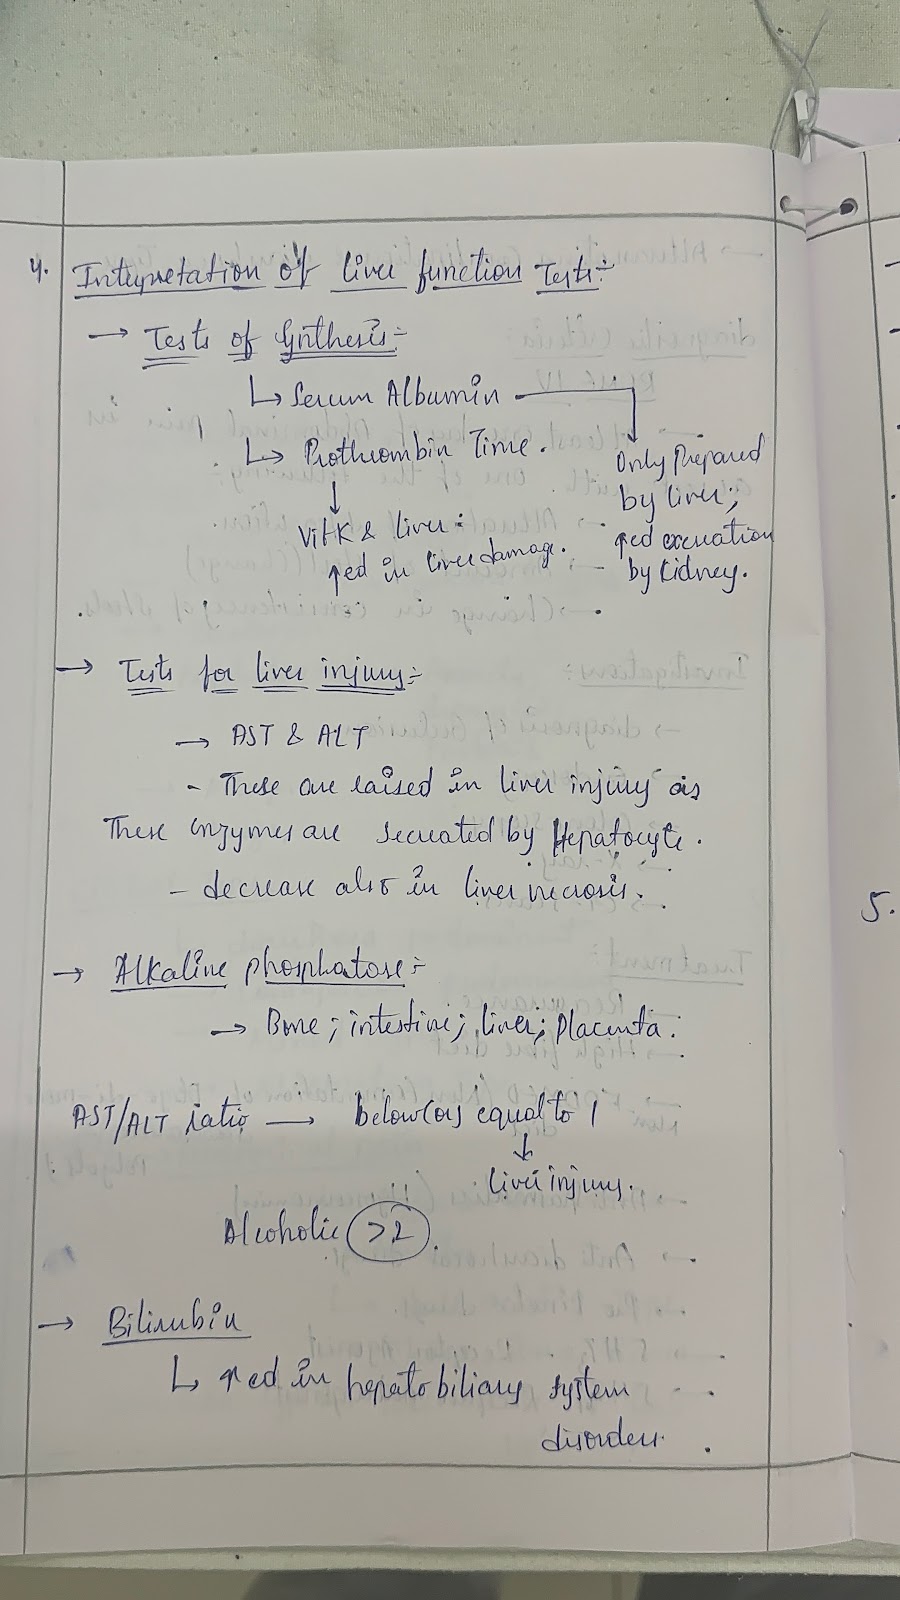 4. Interpretation of liver function Tests:-
→ Tests of Synthesis:-
↳ Serum Albumin
↳ Prothrombin Time.
Only Prepared
by liver;
↑ed excreation
by kidney.
↓
Vit K & liver:
↑ed in liver damage.
→ Tests for liver injury:-
→ AST & ALT
- These are raised in liver injury as
These enzymes are secreated by Hepatocyte.
- decrease also in liver necrosis.
→ Alkaline phosphatase:-
→ Bone; intestine; liver; Placenta.
AST/ALT ratio → below(or) equal to 1
↓
liver injury.
Alcoholic >2.
→ Bilirubin
↳ ↑ed in hepatobiliary system
disorders.
5.